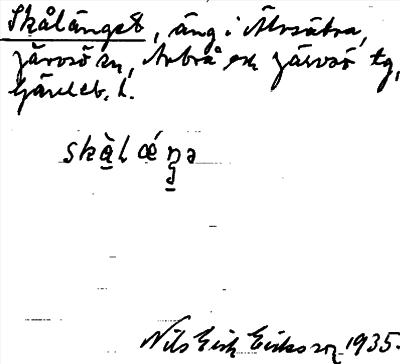 Skålänget, äng i Älvsätra,
Järvsö sn, Arbrå och Järvsö tg,
Gävleb. l.
skàlǽŋə
Nils Erik Eriksson 1935.